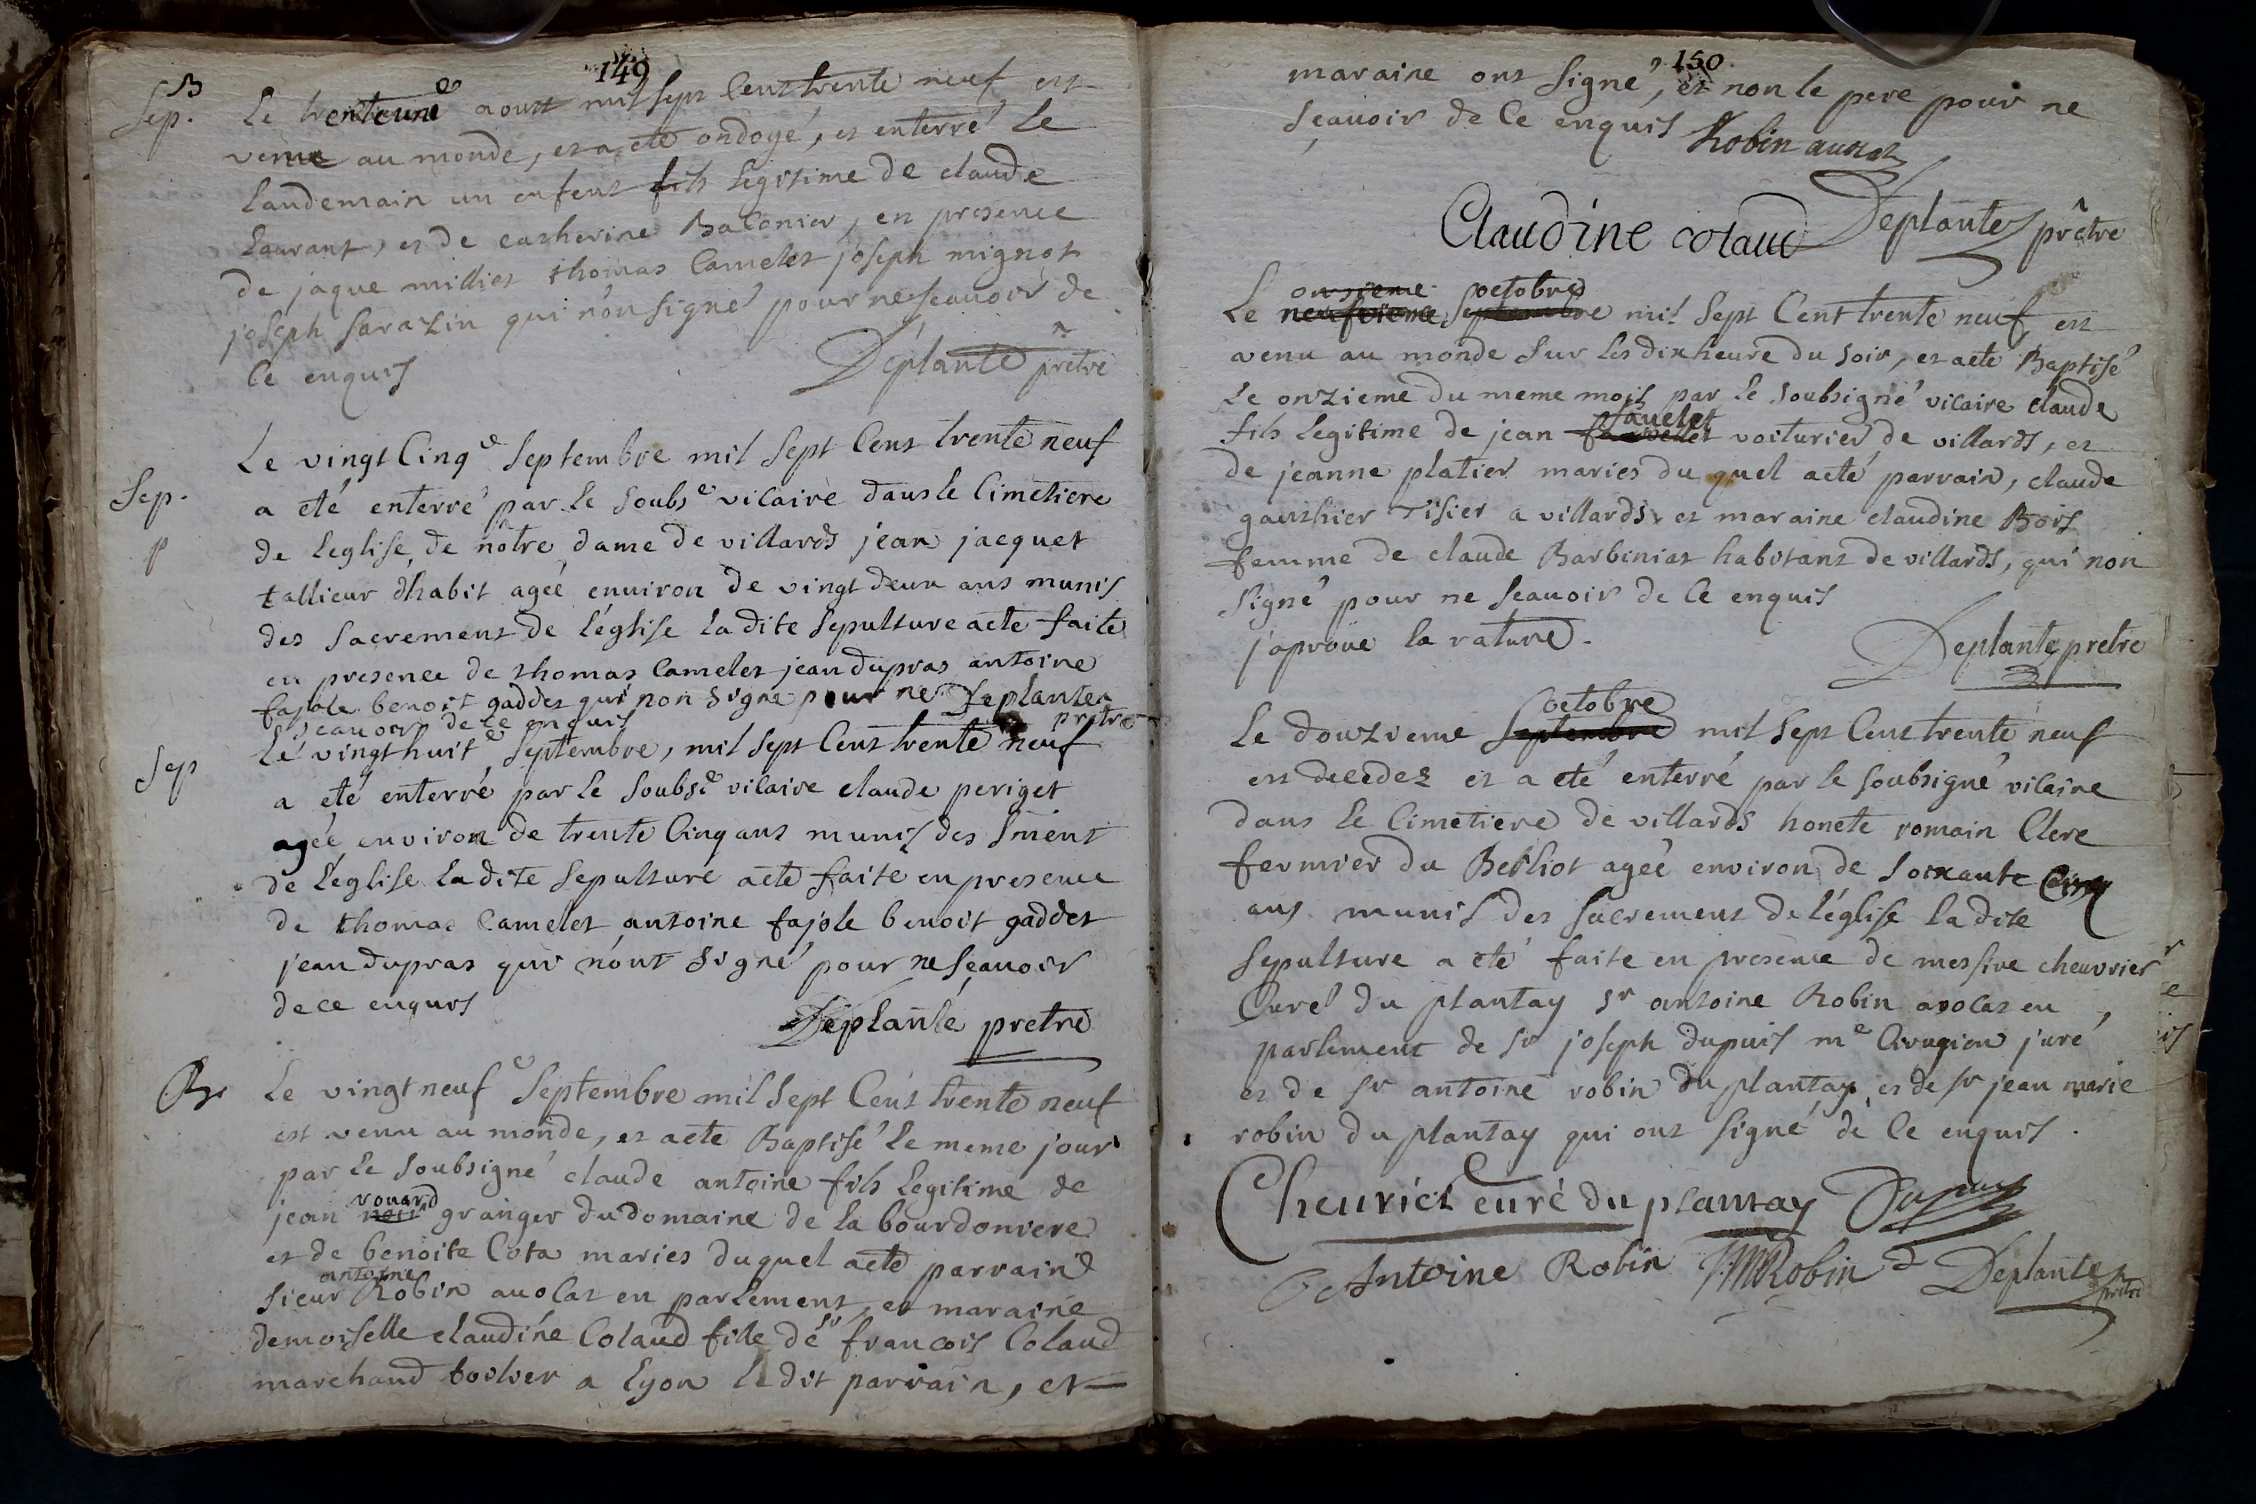 149
B
Sep. Le trenteune aoust mil sept Cent trente neuf est
venue au monde, et a eté ondogé, et enterré Le
Landemain un enfent fils legitime de claude
Laurant, et de catherine Balonier, en presence
de jaque milliet thomas Camelet joseph mignot
joseph sarazin qui n'on signé pour ne scauoir de
Ce enquis
Deplante prêtre
Le vingt Cinq e Septembre mil sept Cent trente neuf
Sep. a eté enterré par Le soubs e vicaire dans le Cimetiere
p de leglise de nôtre dame de villards jean jacquet
tallieur dhabit ageé enuiron de vingt deux ans munis
des sacrement de l'église la dite sepulture a ete faite
en presence de thomas Camelet jean dupras antoine
fajole benoit gaddet qui non signe pour ne Deplante
scauoir de ce enquis prêtre
Sep Le vingt huit e septembre, mil sept Cent trente neuf
a eté enterré par Le soubs e vicaire claude periget
ageé enuiron de trente Cinq ans munis des Sment
de l'eglise la dite sepulture a eté faite en presence
de thomas Camelet antoine fajole benoit gaddet
jean dupras qui n'ont signé pour ne scauoir
de ce enquis
Deplante pretre
B Le vingt neuf e septembre mil sept Cent trente neuf
est venu au monde, et a ete Baptisé Le meme jour
par Le soubsigné claude antoine fils legitime de
vouard
jean granger du domaine de la bourdoniere
et de benoite Cota maries du quel a ete parrain
antoine
sieur Robin auocat en parlement, et maraine
demoiselle claudine Colaud fille de sr francois Colaud
marchand a Lyon le dit parrain, et
150
maraine ont signé, et non le pere pour ne
sçauoir de Ce enquis Robin auocat
Claudine colaud Deplante prêtre
onzieme octobre
Le neufvieme septembre mil sept Cent trente neuf, est
venu au monde sur les dix heure du soir, et a ete Baptisé
Le onzieme du meme mois par Le soubsigné vicaire claude
fauelet
fils legitime de jean voiturier de villards, et
de jeanne platier maries du quel a eté parrain, claude
gauthier Tisier a villards, et maraine claudine Bois
femme de claude Barbiniat habitant de villards, qui non
signé pour ne scauoir de Ce enquis
j'aproüe la rature.
Deplante pretre
octobre
Le douzieme septembre mil sept Cent trente neuf
est decedez et a eté enterré par le soubsigné vicaire
dans Le Cimetiere de villards honete romain Clere
fermier du Berliot ageé environ de soixante Cinq
ans munis des sacrement de l'église la dite
sepulture a eté faite en presence de messire cheuvrier
Curé du plantay sr antoine Robin avocat en
parlement de sr joseph dupuis me Cirugien juré
et de sr antoine robin du plantay, et de sr jean marie
robin du plantay qui ont signé de Ce enquis.
Cheuriet curé du plantay Dupuis
Antoine Robin JMRobin Deplante
prêtre